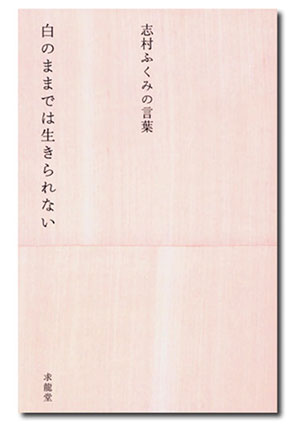 志村ふくみの言葉
白のままでは生きられない
求龍堂